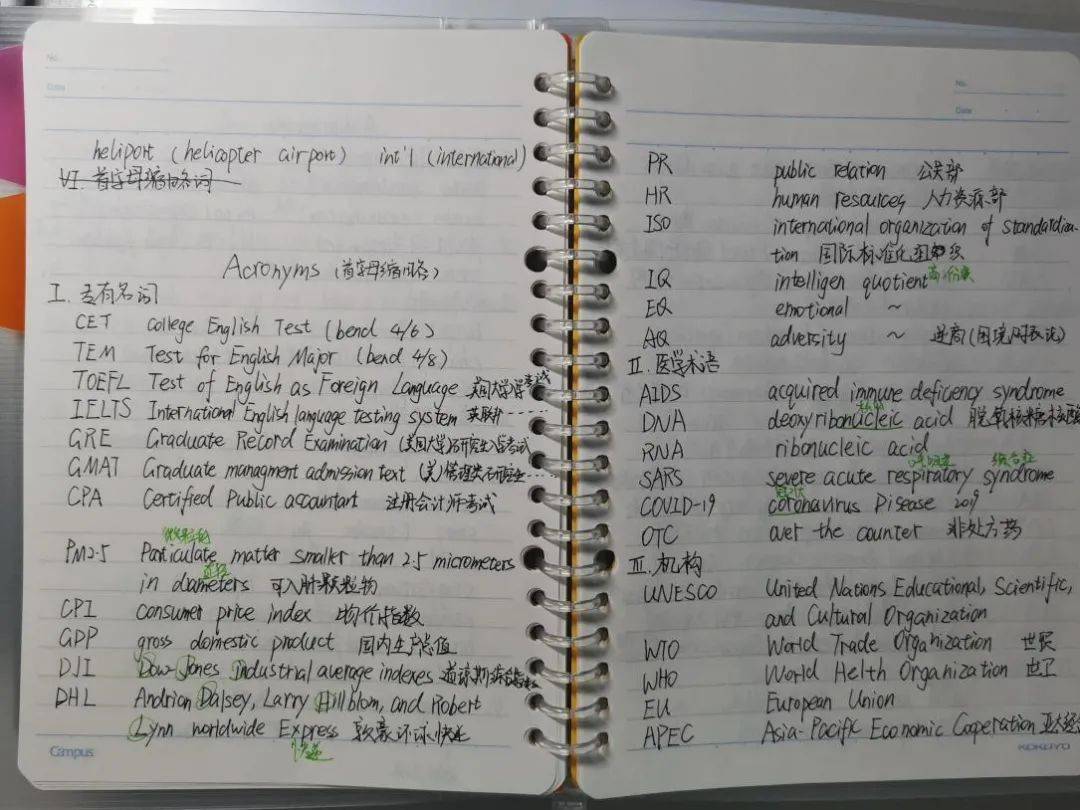 No.
Date
heliport (helicopter airport) int'l (international)
VI. 首字母缩略词
Acronyms (首字母缩略)
I. 专有名词
CET college English Test (bend 4/6)
TEM Test for English Major (bend 4/8)
TOEFL Test of English as Foreign Language 考试
IELTS International English language testing system 英联邦
GRE Graduate Record Examination (美国大学)研究生入学考试
GMAT Graduate managment admission text (美)管理类研究生
CPA Certified Public accountant 注册会计师考试
微粒的
PM2.5 Particulate matter smaller than 2.5 micrometers
直径
in diameters 可入肺颗粒物
CPI consumer price index 物价指数
GDP gross domestic product 国内生产总值
DJI Dow Jones Industrial average indexes 道琼斯
DHL Andrian Dalsey, Larry Hillblom, and Robert
Lynn worldwide Express 敦豪环球快递
快递
Campus
No.
Date
PR public relation 公关部
HR human resources 人力资源部
ISO international organization of standardiza-
tion 国际标准化组织
IQ intelligen quotient 商
EQ emotional ~
AQ adversity ~ 逆商
II. 医学术语
AIDS acquired immune deficency syndrome
DNA deoxyribonucleic acid 脱氧核糖核酸
RNA ribonucleic acid
呼吸道 综合症
SARS severe acute respiratory syndrome
冠状
COVID-19 coronavirus Disease 2019
OTC over the counter 非处方药
III. 机构
UNESCO United Nations Educational, Scientific,
and Cultural Organization
WTO World Trade Organization 世贸
WHO World Helth Organization 世卫
EU European Union
APEC Asia-Pacific Economic Coperation 亚太经
KOKUYO